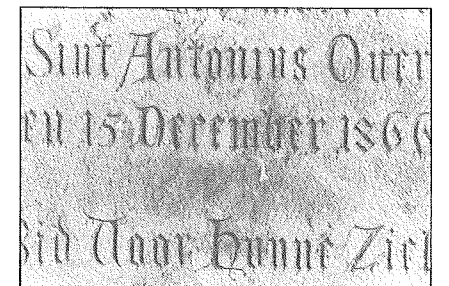 Sint Antonius Over
en 15 December 186
Bid Voor Hunne Ziel